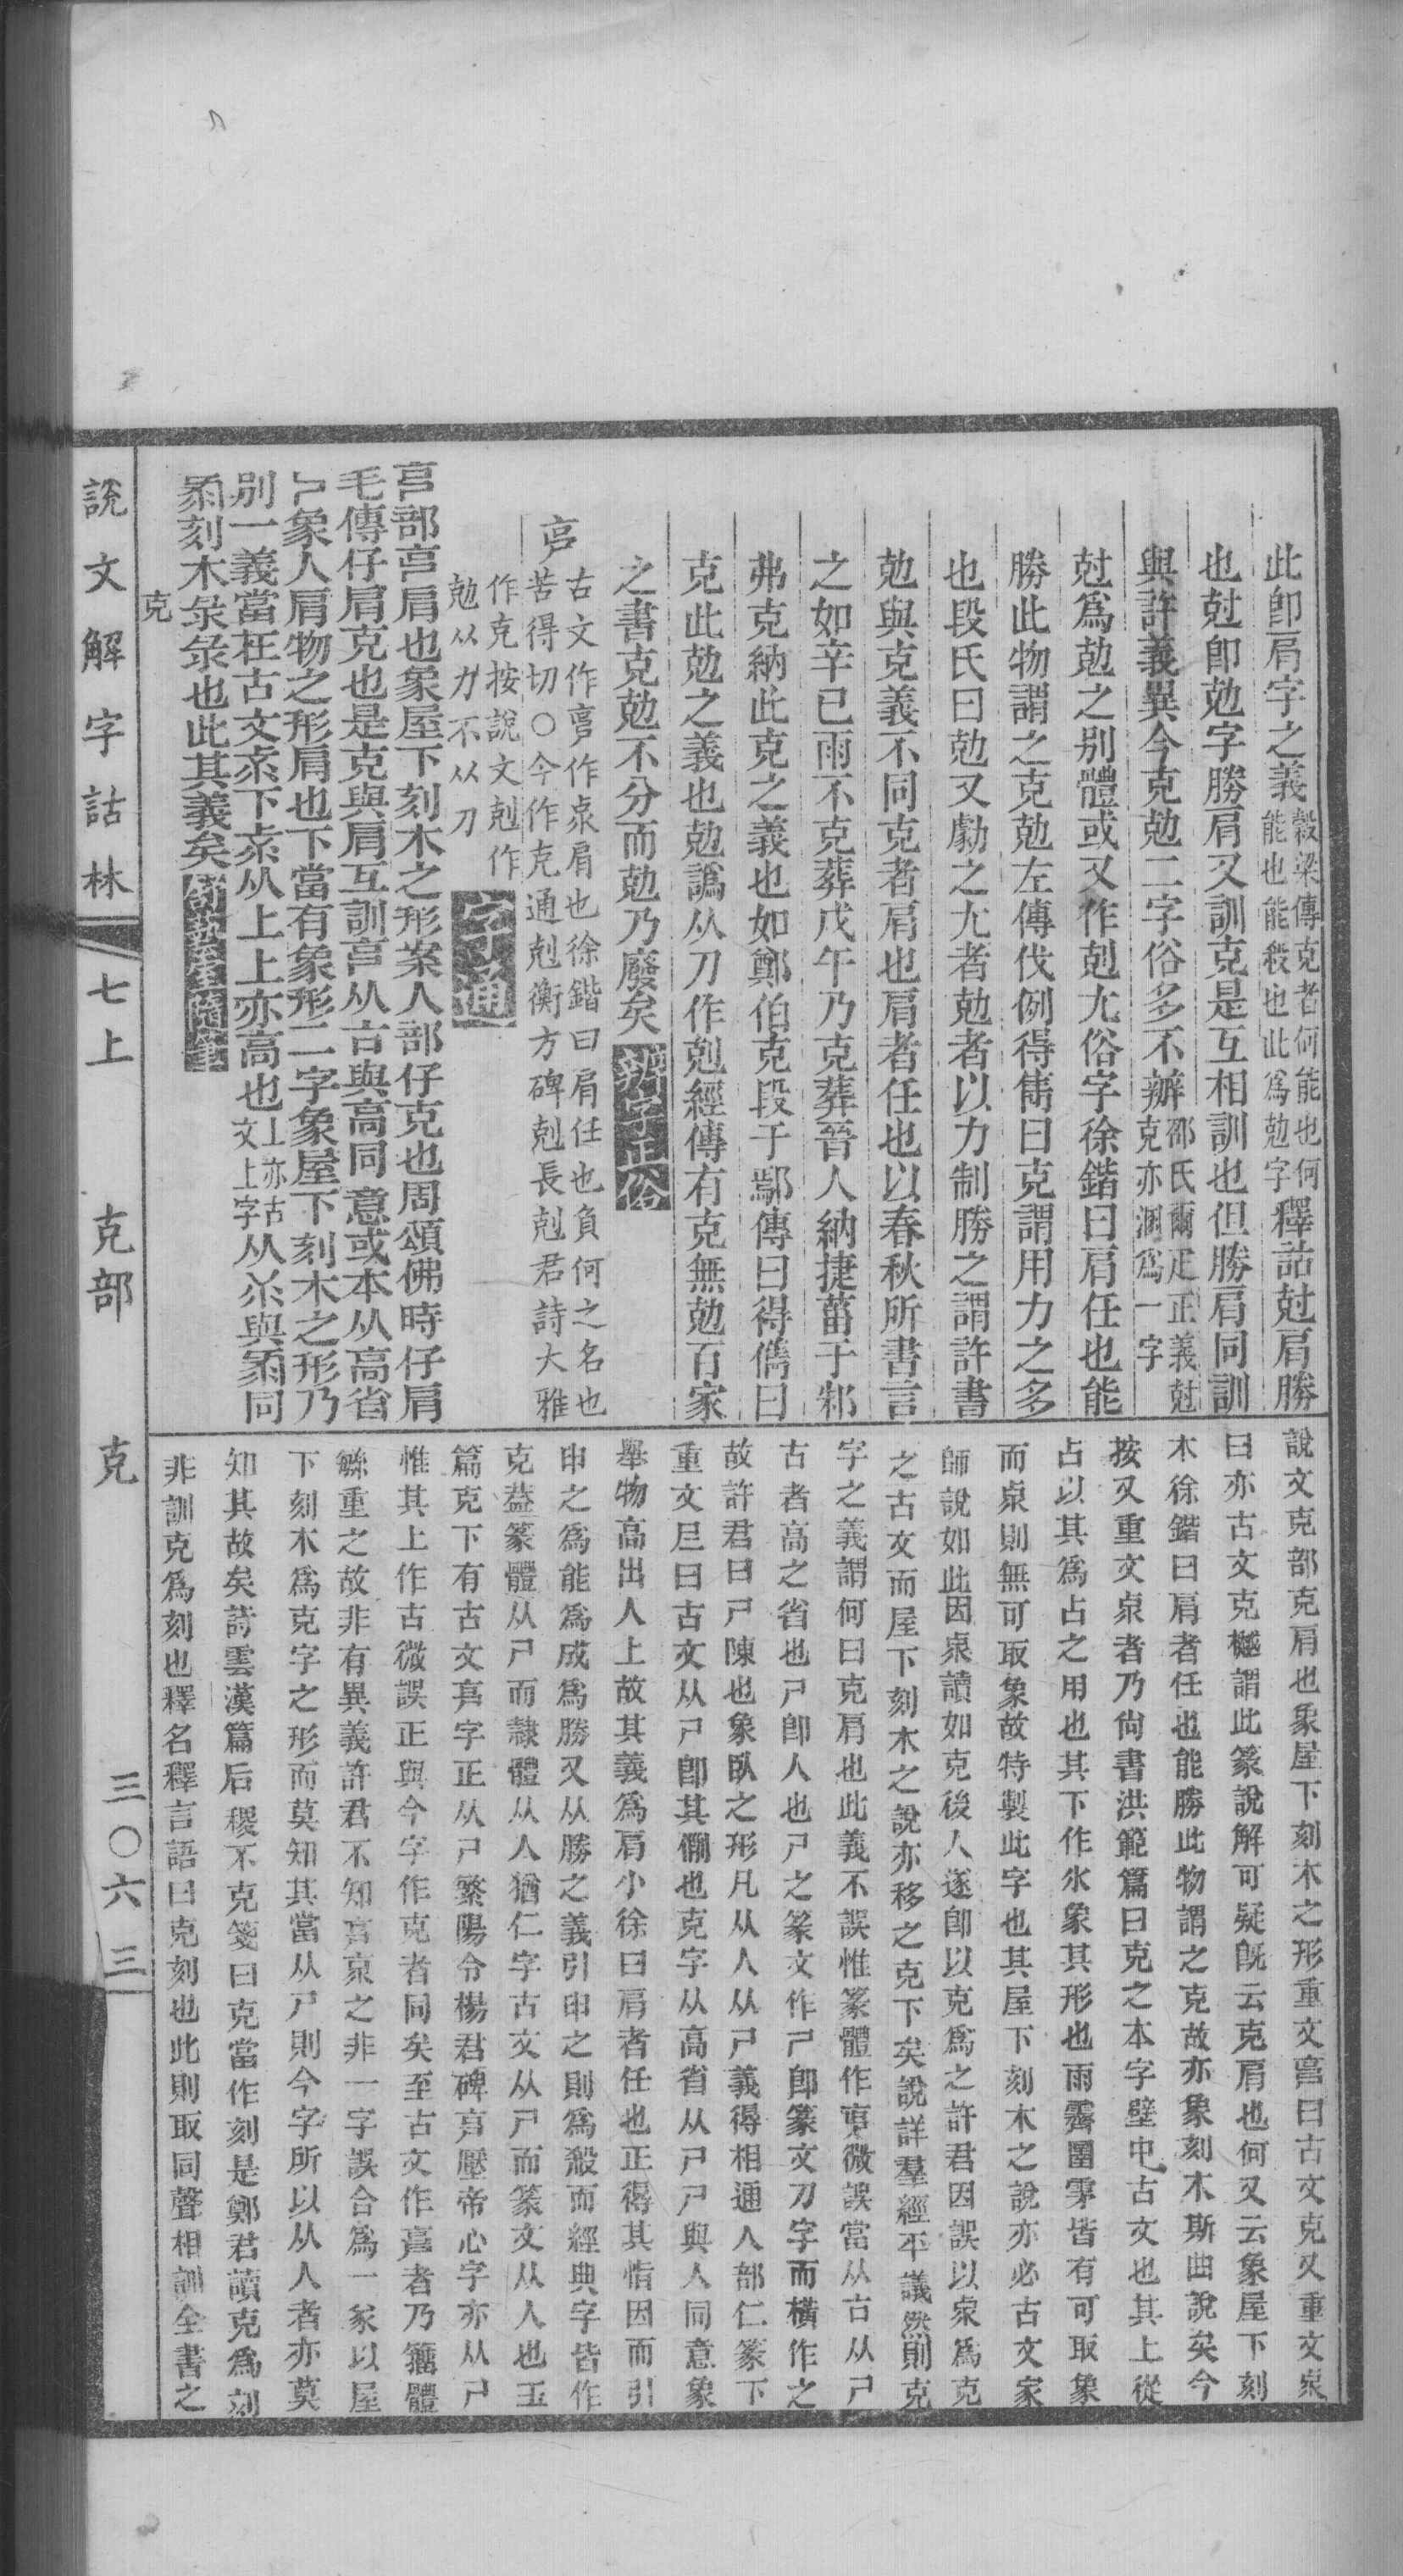 此卽肩字之義穀梁傳克者何能也何
能也能殺也此爲勊字釋詁尅肩勝
也尅卽勊字勝肩又訓克是互相訓也但勝肩同訓
與許義異今克勊二字俗多不辦邵氏爾疋正義尅
克亦溷爲一字
尅爲勊之别體或又作剋尤俗字徐鍇曰肩任也能
勝此物謂之克勊左傳伐例得雋曰克謂用力之多
也段氏曰勊又勮之尤者勊者以力制勝之謂許書
勊與克義不同克者肩也肩者任也以春秋所書言
之如辛巳雨不克葬戊午乃克葬晉人納捷菑于邾
弗克納此克之義也如鄭伯克段于鄢傳曰得儁曰
克此勊之義也勊譌从刀作剋經傳有克無勊百家
之書克勊不分而勊乃廢矣
古文作作肩也徐鍇曰肩任也負何之名也
苦得切〇今作克通剋衡方碑剋長剋君詩大雅
作克按說文剋作
勊从力不从刀
部肩也象屋下刻木之形案人部仔克也周頌佛時仔肩
毛傳仔肩克也是克與肩互訓从古與高同意或本从高省
象人肩物之形肩也下當有象形二字象屋下刻木之形乃
別一義當在古文下从上上亦高也上亦古
文上字从與同
刻木彔彔也此其義矣
克
說文解字詁林
七上
克部
克
三〇六三
說文克部克肩也象屋下刻木之形重文曰古文克又重文
曰亦古文克樾謂此篆說解可疑旣云克肩也何又云象屋下刻
木徐鍇曰肩者任也能勝此物謂之克故亦象刻木斯曲說矣今
按又重文者乃尙書洪範篇曰克之本字壁中古文也其上從
占以其爲占之用也其下作氺象其形也雨霽圛雺皆有可取象
而則無可取象故特製此字也其屋下刻木之說亦必古文家
師說如此因讀如克後人遂卽以克爲之許君因誤以爲克
之古文而屋下刻木之說亦移之克下矣說詳羣經平議然則克
字之義謂何曰克肩也此義不誤惟篆體作微誤當从古从尸
古者高之省也尸卽人也尸之篆文作卽篆文刀字而橫作之
故許君曰尸陳也象臥之形凡从人从尸義得相通人部仁篆下
重文𡰥曰古文从尸卽其例也克字从高省从尸尸與人同意象
舉物高出人上故其義爲肩小徐曰肩者任也正得其恉因而引
申之爲能爲成爲勝又从勝之義引申之則爲殺而經典字皆作
克蓋篆體从尸而隸體从人猶仁字古文从尸而篆文从人也玉
篇克下有古文字正从尸繁陽令楊君碑壓帝心字亦从尸
惟其上作古微誤正與今字作克者同矣至古文作者乃籒體
緐重之故非有異義許君不知之非一字誤合爲一家以屋
下刻木爲克字之形而莫知其當从尸則今字所以从人者亦莫
知其故矣詩雲漢篇后稷不克箋曰克當作刻是鄭君讀克爲刻
非訓克爲刻也釋名釋言語曰克刻也此則取同聲相訓全書之